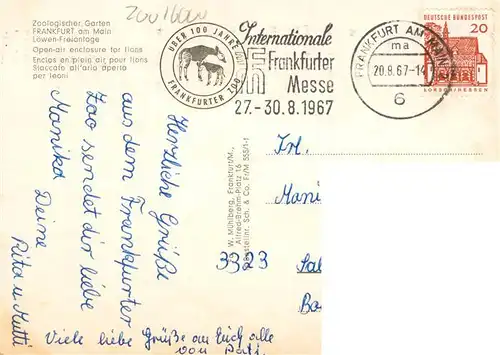 Zoologischer Garten
FRANKFURT am Main
Löwen-Freianlage
Open-air enclosure for lions
Enclos en plein air pour lions
Staccato all'aria aperta
per leoni
ÜBER 100 JAHRE
FRANKFURTER ZOO
Internationale
Frankfurter
Messe
27.-30.8.1967
FRANKFURT AM MAIN
ma
20.8.67-14
6
DEUTSCHE BUNDESPOST
20
LORSCH/HESSEN
Herzliche Grüße
aus dem Frankfurter
Zoo sendet dir liebe
Monika Deine
Rita u. Mutti
Viele liebe Grüße an Euch alle
von
W. Mühlberg, Frankfurt/M.,
Alfred-Brehm-Platz 16
Bestellnr. Sch. & Co. Fr/M 555/1-1
Frl.
Moni
3323 Sal
Ba